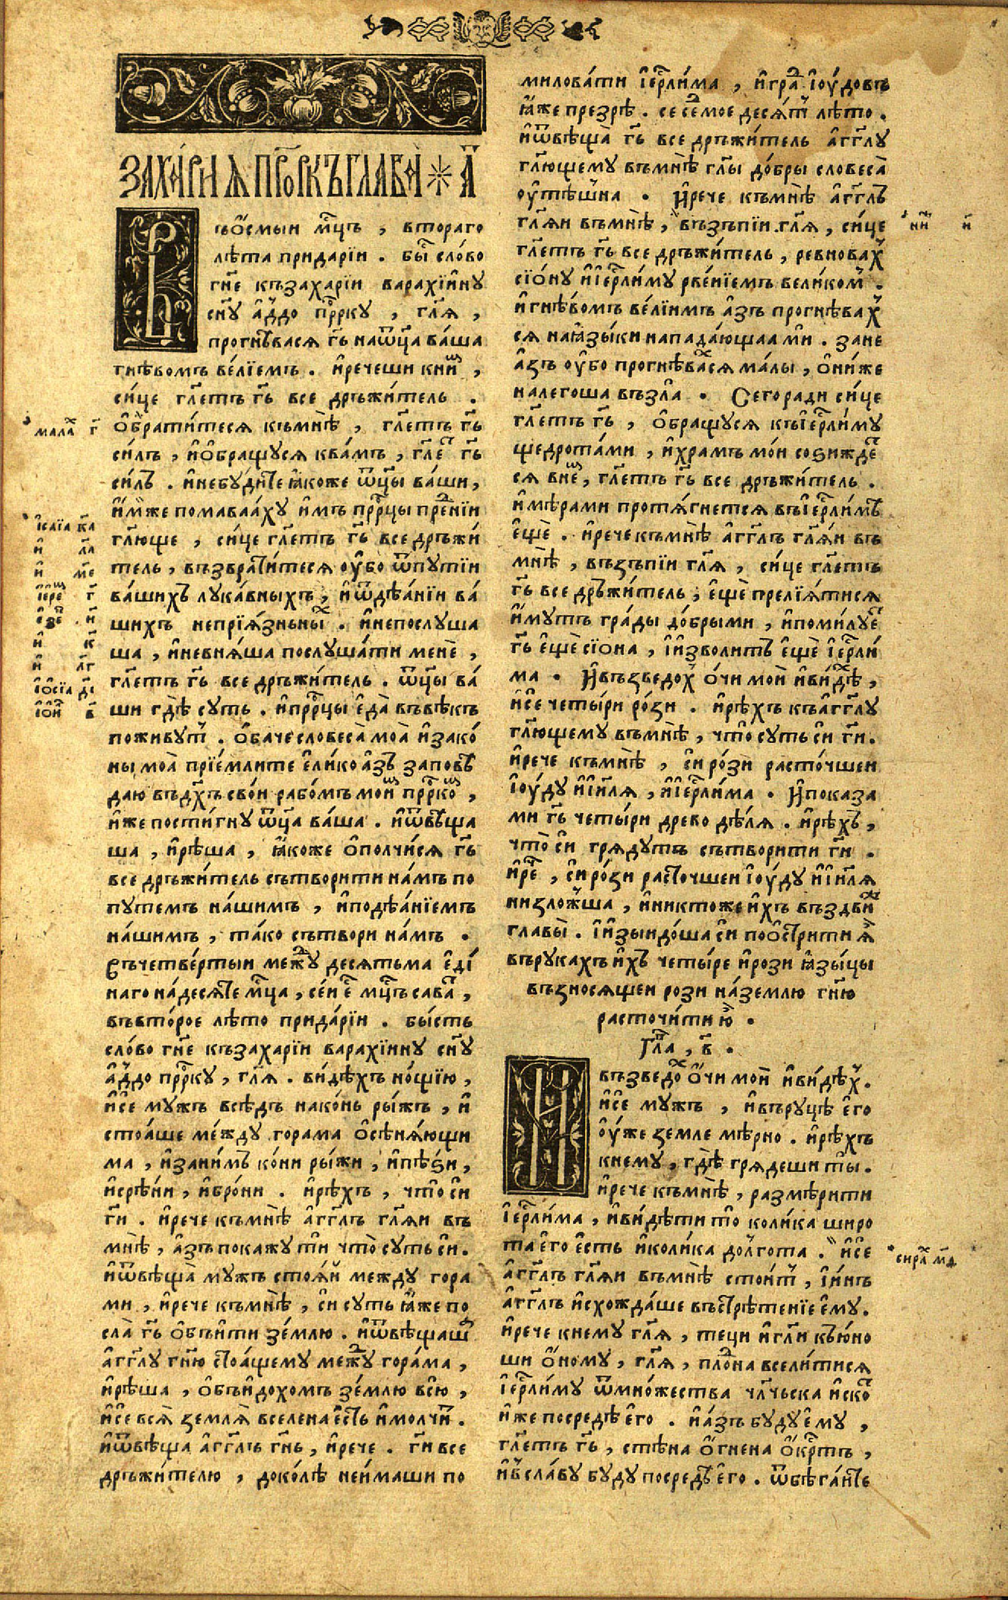 ЗАХА́РИꙖ ПРⷪ҇РКЪ ГЛАВА̀ * А҃
Въ о҆смыи мцⷭ҇ъ , втораго
лѣта придарїи . бы́ⷭ҇ сло́во
гнⷭ҇е къзахарїи варахїи́нꙋ
сн҃ꙋ а҆́ддо прⷪ҇ркꙋ , гл҃ѧ ,
прогнѣвасѧ гⷭ҇ь наѿц҃а ва́ша
гнѣвомъ ве́лїемъ . и҆речеши книⷨ ,
си́це гл҃етъ гⷭ҇ь все дръжи́тель .
ѻ҆брати́тесѧ къмнѣ̀ , гл҃етъ гⷭ҇ь
си́лъ , и҆ѻ҆бращꙋсѧ ква́мъ , гл҃еⷮ гⷭ҇ь
си́лъ . и҆небꙋди́те ꙗ҆́коже ѿц҃ы ва́ши ,
и҆́мже помаваа́хꙋ и҆́мъ прⷪ҇рцы пре́жнїи
гл҃юще , си́це гл҃етъ гⷭ҇ь все дръжи́
тель , възврати́тесѧ ᲂу҆бо ѿпꙋтїи
ва́шихъ лꙋка́вныхъ , и҆ѿдѣа́нїи ва́
шихъ непрїꙗ́зньныⷯ . и҆непослꙋша
ша , и҆невнѧ́ша послꙋша́ти менѐ ,
гл҃етъ гⷭ҇ь все дръжи́тель . ѿц҃ы ва́
ши гдѣ̀ сꙋть . и҆прⷪ҇рцы е҆да̀ въвѣ́къ
поживꙋтⷮ . ѻ҆ба́че словеса̀ моа̀ и҆зако́
ны моа̀ прїе́млите е҆ли́ко а҆́зъ запове
даю въдⷯѣ свое́и рабо́мъ мои́мъ прⷪ҇ркоⷨ ,
и҆́же пости́гнꙋ ѿц҃а ва́ша . и҆ѿвѣща
ша , и҆рѣ́ша , ꙗ҆́коже ѻ҆полчи́сѧ гⷭ҇ь
все дръжи́тель сътвори́ти на́мъ по
пꙋте́мъ на́шимъ , и҆подѣа́нїемъ
на́шимъ , та́ко сътвори на́мъ .
Въчетве́ртыи межⷣꙋ десѧтьма е҆ди́
наго на́десѧте мцⷭ҇а , се́и є҆ⷭ҇ мцⷭ҇ъ саваⷮ ,
въвто́рое лѣ́то прида́рїи . бы́сть
сло́во гнⷭ҇е къзаха́рїи варахїи́нꙋ сн҃ꙋ
а҆́ддо прⷪ҇ркꙋ , гл҃ѧ . ви́дѣхъ но́щїю ,
и҆сѐ мꙋжъ всѣ́дъ нако́нь ры́жъ , и҆
стоа́ше ме́ждꙋ гора́ма ѻ҆сѣнѧ́ющи
ма , и҆зани́мъ ко́ни ры́жи , и҆пѣ́ѕи ,
и҆срѣ́ни , и҆бро́ни . и҆рѣ́хъ , что̀ си́и
гⷭ҇и . и҆рече къмнѣ̀ а҆́гг҃лъ гл҃ѧи въ
мнѣ̀ , а҆́зъ покажꙋ тѝ что̀ сꙋть сѝ .
и҆ѿвѣща̀ мꙋжъ стоѧ́й междꙋ гора
ми , и҆рече къмнѣ̀ , си́ сꙋть ꙗ҆́же по
сла̀ гⷭ҇ь ѻ҆бъи́ти зе́млю . и҆ѿвѣщаша
а҆́гг҃лꙋ гнⷭ҇ю стоа́щемꙋ межⷣꙋ гора́ма ,
и҆рѣ́ша , ѻ҆бъи́дохомъ зе́млю всю̀ ,
и҆сѐ всѧ̀ землѧ̀ вселена є҆́сть и҆молчи́ⷮ .
и҆ѿвѣща а҆́гг҃лъ гнⷭ҇ь , и҆рече . гⷭ҇и все
дръжи́телю , доко́лѣ неи́маши по
милова́ти і҆ерⷭ҇ли́ма , и҆гра́ды і҆ꙋ́довы
ꙗ҆́же презрѣ̀ . се се́дмое десѧ́тⷪ лѣ́то .
и҆ѿвѣща̀ гⷭ҇ь все дръжи́тель а҆́гг҃лꙋ
гл҃ющемꙋ въмнѣ̀ гл҃ы до́бры словеса̀
ᲂу҆тѣ́шна . И҆рече къмнѣ̀ а҆́гг҃лъ
гл҃ѧи въмнѣ̀ , възъпїи гл҃ѧ , си́це
гл҃етъ гⷭ҇ь все дръжи́тель , ревноваⷯ
сїо́нꙋ и҆і҆ерⷭ҇ли́мꙋ рве́нїемъ вели́комⷨ .
и҆гнѣ́вомъ ве́лїимъ а҆́зъ прогнѣ́ваⷯ
сѧ наꙗ҆зы́ки напада́ющаа ми . зане
а҆́зъ ᲂу҆́бо прогнѣ́вахсѧ ма́лы , ѻ҆ни́же
налегоша възла̀ . Сегоради си́це
гл҃етъ гⷭ҇ь , ѻ҆бращꙋсѧ къі҆ерⷭ҇ли́мꙋ
щедро́тами , и҆хра́мъ мо́и сози́жде
сѧ вне́мъ , гл҃етъ гⷭ҇ь все дръжи́тель .
и҆мѣ́рами протѧ́гнетсѧ въі҆ерⷭ҇ли́мѣ
є҆щѐ . и҆рече къмнѣ̀ а҆́гг҃лъ гл҃ѧи въ
мнѣ̀ , възъпїи гл҃ѧ , си́це гл҃етъ
гⷭ҇ь все дръжи́тель , є҆щѐ прелїѧ́тисѧ
и҆́мꙋтъ гра́ды до́брыми , и҆поми́лꙋеⷮ
гⷭ҇ь є҆щѐ сїо́на , і҆и҆зво́литъ є҆щѐ і҆ерⷭ҇ли́
ма . И҆възведо́хъ ѻ҆́чи мои́ и҆ви́дѣⷯ ,
и҆сѐ четы́ри ро́зи . и҆рѣ́хъ къа҆́гг҃лꙋ
гл҃ющемꙋ въмнѣ̀ , что̀ сꙋть си́ гⷭ҇и .
и҆рече къмнѣ̀ , си́ ро́зи расто́чшеи
і҆ꙋ́дꙋ и҆і҆и҃лѧ , и҆і҆ерⷭ҇ли́ма . И҆показа
ми гⷭ҇ь четы́ри древо дѣ́лѧ . и҆рѣ́хъ ,
что̀ си́ грѧдꙋтъ сътвори́ти гⷭ҇и .
и҆реⷱ҇ , си́ ро́зи расто́чшеи і҆ꙋ́дꙋ и҆і҆и҃лѧ
низло́жша , и҆никто́же и҆́хъ въздви́же
главы̀ . і҆и҆зыидо́ша си́и поѻ҆стри́ти ѧ҆̀
върꙋка́хъ и҆́хъ четы́ре и҆рози ꙗ҆зы́цы
възносѧ́щеи рози на́землю гнⷭ҇ю
расточи́ти ю҆̀ .
Гла , в҃ .
И҆възведоⷯ ѻ҆́чи мои́ и҆ви́дѣⷯ .
и҆сѐ мꙋжъ , и҆върꙋцѣ̀ є҆го̀
ᲂу҆́же земле мѣ́рно . и҆рѣ́хъ
кнемꙋ , гдѣ̀ грѧде́ши ты̀ .
и҆рече къмнѣ̀ , размѣ́рити
і҆ерⷭ҇ли́ма , и҆ви́дѣти то̀ коли́ка широ
та̀ є҆го̀ є҆́сть и҆коли́ка долгота̀ . и҆сѐ
а҆́гг҃лъ гл҃ѧи въмнѣ̀ стои́тⷮ , і҆и҆́нъ
а҆́гг҃лъ и҆схожда́ше въстрѣ́тенїе є҆мꙋ̀ .
и҆рече кнемꙋ гл҃ѧ , тецѝ и҆гл҃и къю҆́но
ши ѻ҆́номꙋ , гл҃ѧ , пло́дна всели́тисѧ
і҆ерⷭ҇ли́мꙋ ѿмно́жества чл҃чьска и҆ско́ⷮ
и҆́же посредѣ̀ є҆го̀ . и҆а҆́зъ бꙋ́дꙋ є҆мꙋ̀ ,
гл҃етъ гⷭ҇ь , стѣна̀ ѻ҆́гнена ѻ҆́крⷭ҇тъ ,
и҆в̾сла́вꙋ бꙋ́дꙋ посредѣ̀ є҆го̀ . ѿбѣга́ите
мала́ⷯ г҃
і҆са́їа ка҃
и҆ ла҃
и҆ ме҃
і҆ереⷨ г҃
є҆зе́ⷦ н҃і
и҆ к҃
и҆ лг҃
ѻ҆сїа д҃і
і҆ѻи́ⷧ в҃
сира́ⷯ мд҃